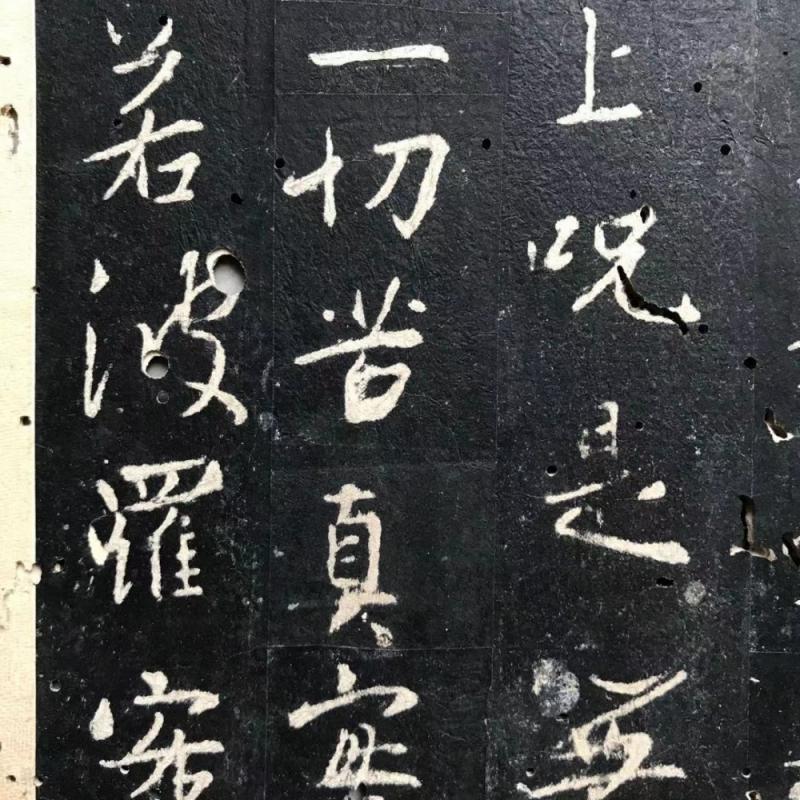 上呪是無
一切苦真實
若波羅